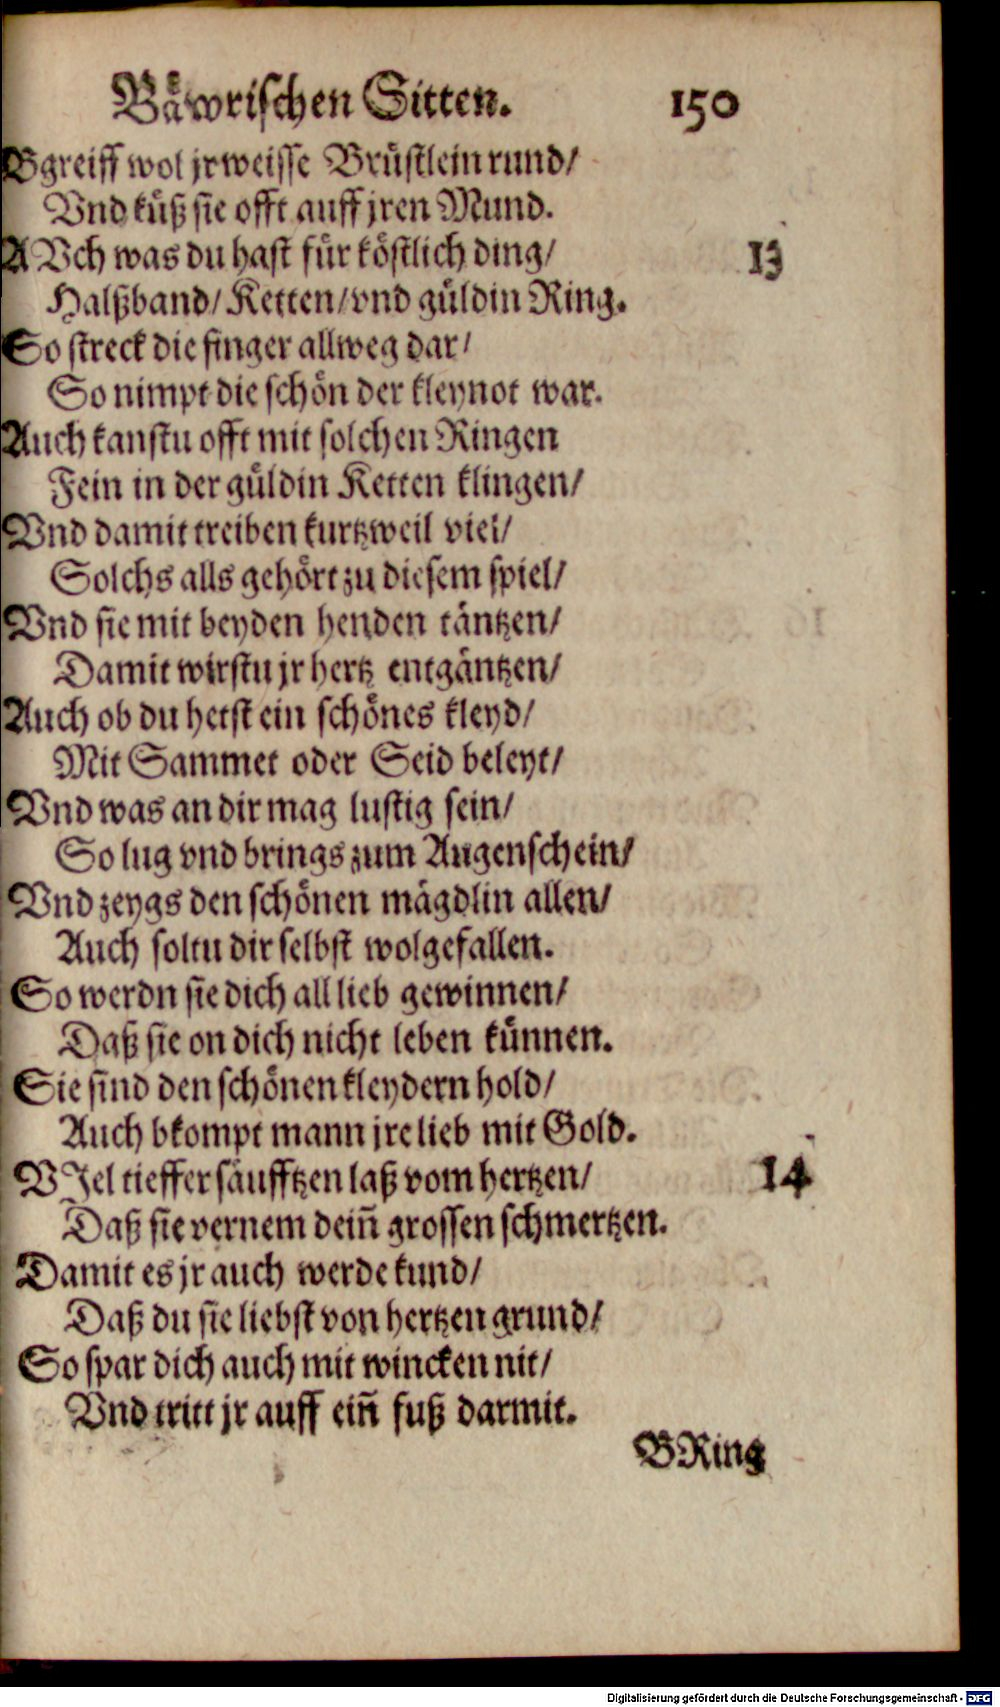 Baͤwrischen Sitten. 150
Bgreiff wol jr weisse Bruͤstlein rund/
Vnd kuͤß sie offt auff jren Mund.
AVch was du hast fuͤr koͤstlich ding/ 13
Halßband/ Ketten/ vnd guͤldin Ring.
So streck die finger allweg dar/
So nimpt die schoͤn der kleynot war.
Auch kanstu offt mit solchen Ringen
Fein in der guͤldin Ketten klingen/
Vnd damit treiben kurtzweil viel/
Solchs alls gehoͤrt zu diesem spiel/
Vnd sie mit beyden henden taͤntzen/
Damit wirstu jr hertz entgaͤntzen/
Auch ob du hetst ein schoͤnes kleyd/
Mit Sammet oder Seid beleyt/
Vnd was an dir mag lustig sein/
So lug vnd brings zum Augenschein/
Vnd zeygs den schoͤnen maͤgdlin allen/
Auch soltu dir selbst wolgefallen.
So werdn sie dich all lieb gewinnen/
Daß sie on dich nicht leben kuͤnnen.
Sie sind den schoͤnen kleydern hold/
Auch bkompt mann jre lieb mit Gold.
VJel tieffer saͤufftzen laß vom hertzen/ 14
Daß sie vernem dein̄ grossen schmertzen.
Damit es jr auch werde kund/
Daß du sie liebst von hertzen grund/
So spar dich auch mit wincken nit/
Vnd tritt jr auff ein̄ fuß darmit.
BRing
Digitalisierung gefördert durch die Deutsche Forschungsgemeinschaft - DFG